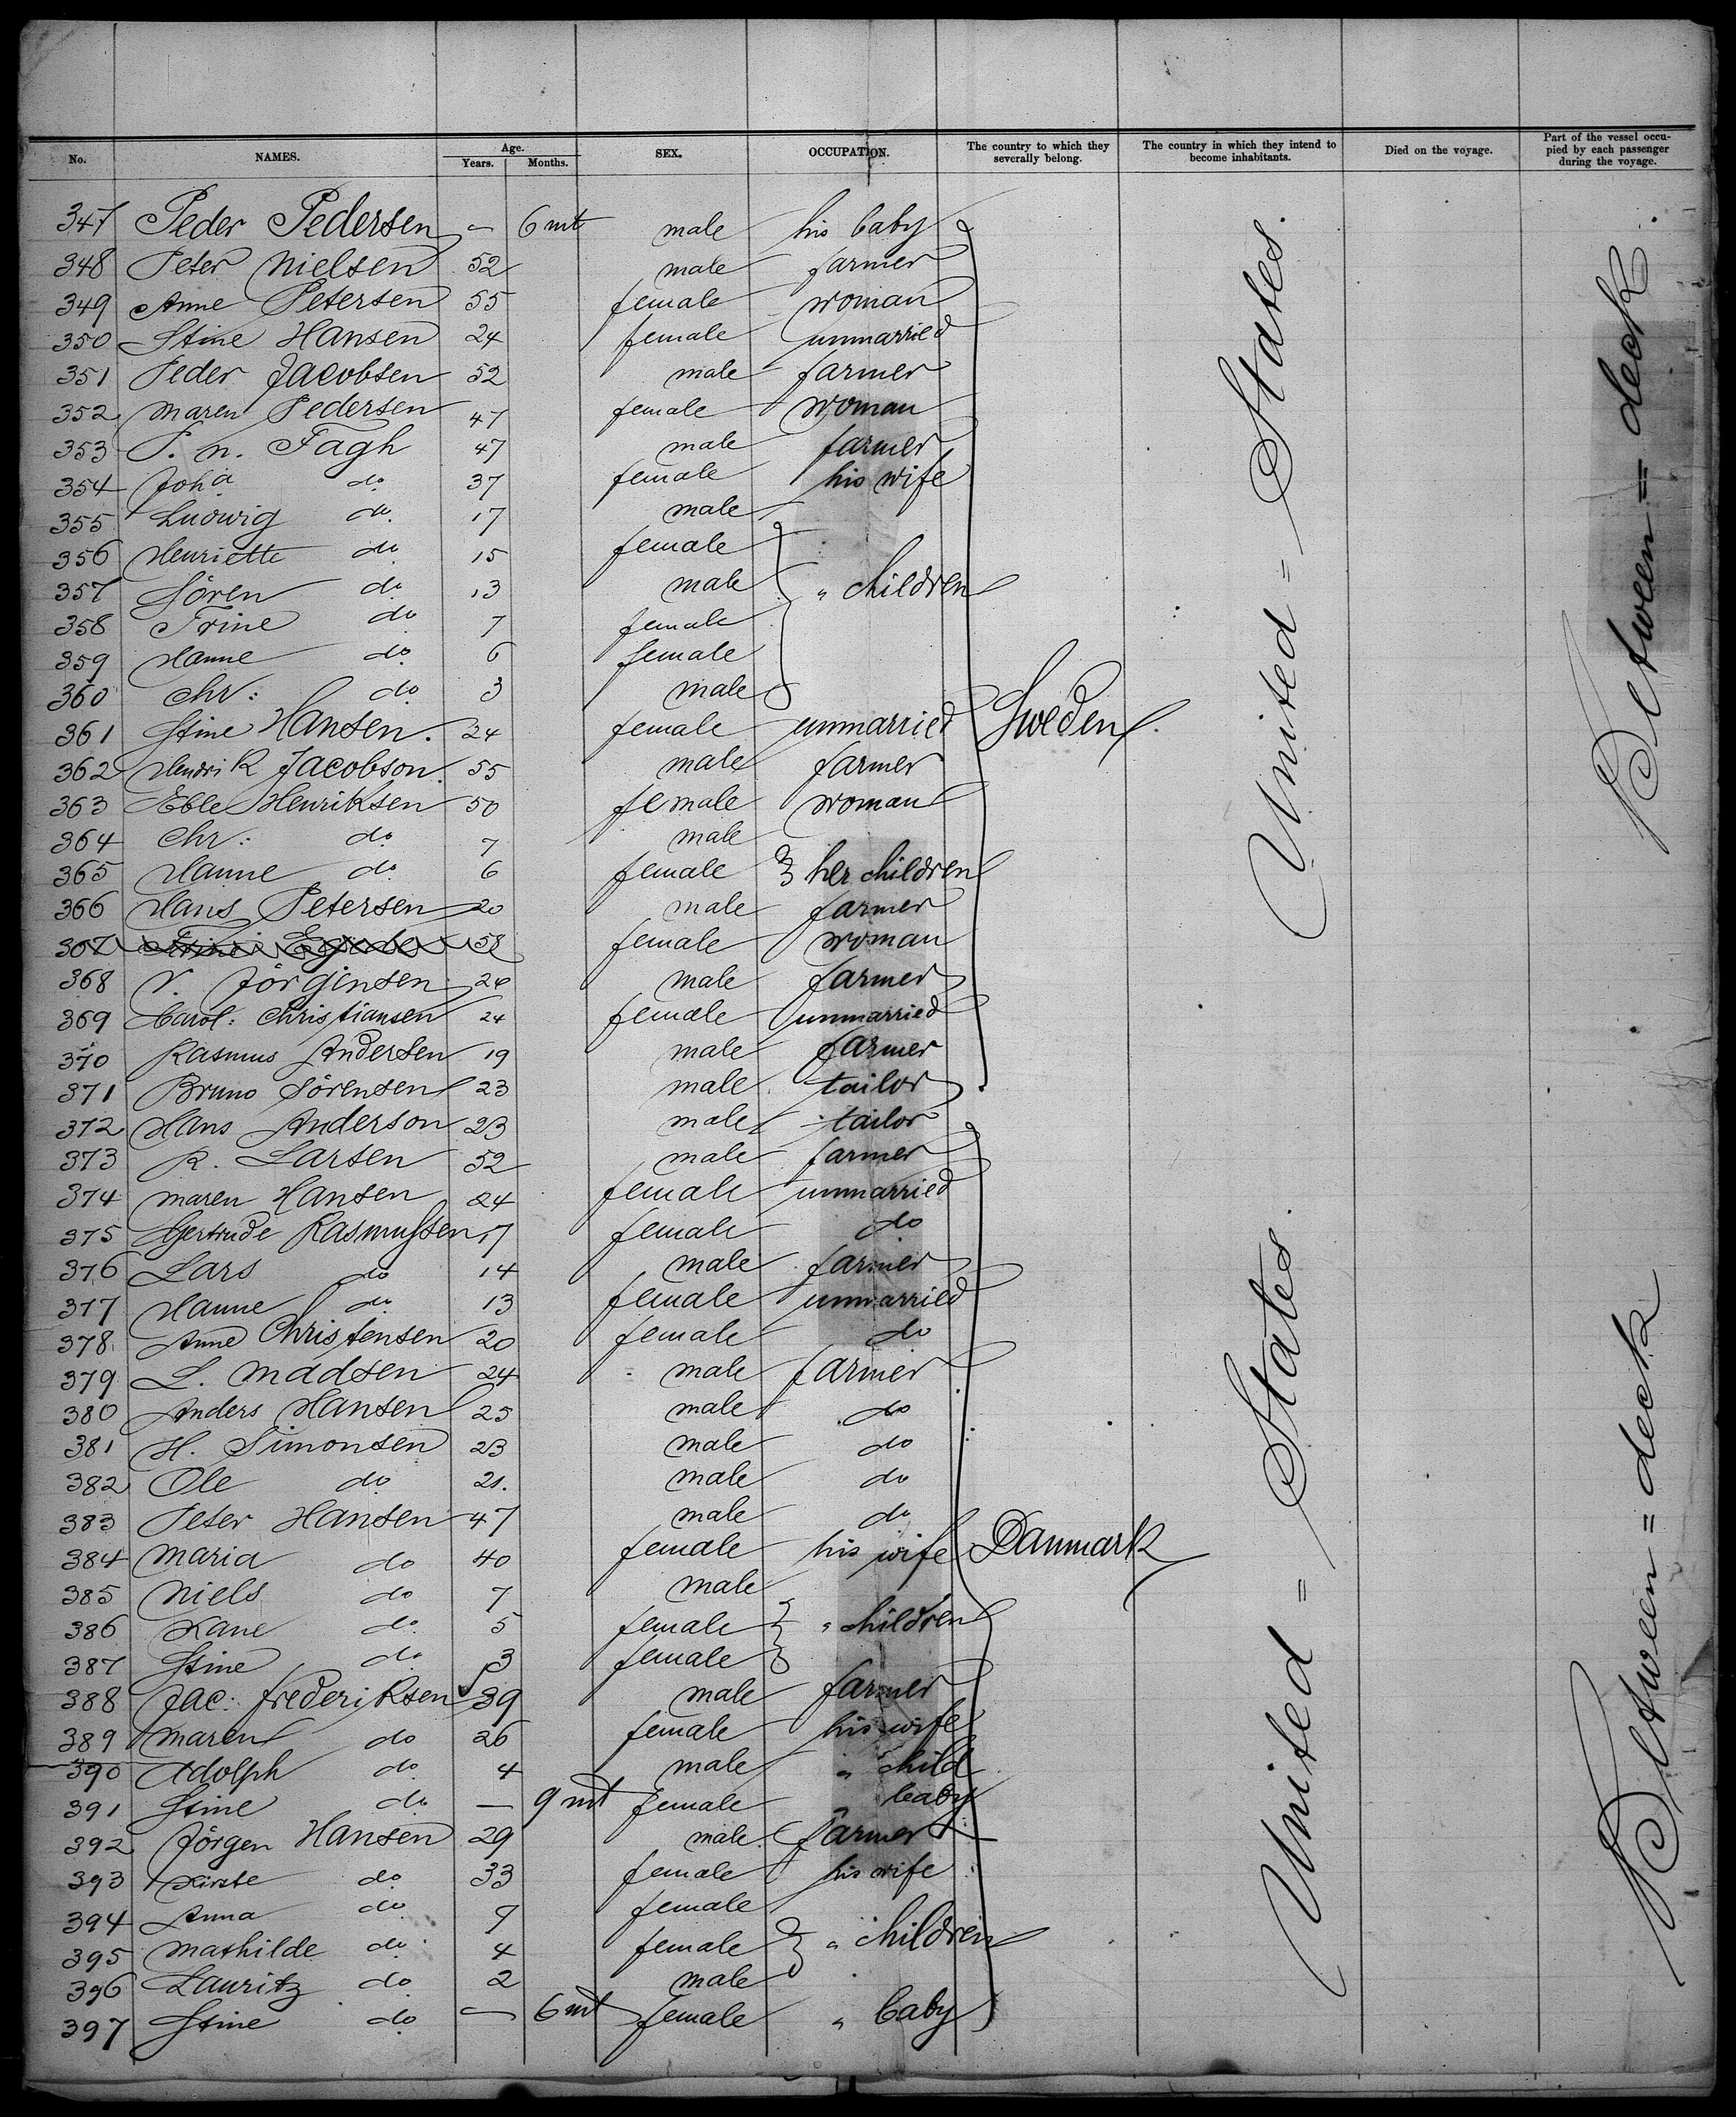 No. NAMES. Age. Years. Months. SEX. OCCUPATION. The country to which they severally belong. The country in which they intend to become inhabitants. Died on the voyage. Part of the vessel occupied by each passenger during the voyage.
347 Peder Pedersen — 6 mt male his baby
348 Peter Nielsen 52 male farmer
349 Anne Petersen 55 female woman
350 Stine Hansen 24 female unmarried
351 Peder Jacobsen 52 male farmer
352 Maren Pedersen 47 female woman
353 P. N. Fagh 47 male farmer
354 Joha do 37 female his wife
355 Ludwig do 17 male
356 Henriette do 15 female
357 Sören do 13 male " children
358 Trine do 7 female
359 Hanne do 6 female
360 Chr: do 3 male
361 Stine Hansen. 24 female unmarried Sweden
362 Hendrik Jacobson 55 male farmer
363 Eble Henriksen 50 female woman
364 Chr: do 7 male
365 Hanne do 6 female her children
366 Hans Petersen 20 male farmer
367 58 female woman
368 Jörgensen 26 male farmer
369 Carol: Christiansen 24 female unmarried
370 Rasmus Andersen 19 male farmer
371 Bruno Sörensen 23 male tailor
372 Hans Anderson 23 male tailor
373 R. Larsen 52 male farmer
374 Maren Hansen 24 female unmarried
375 Gertrude Rasmussen 17 female do
376 Lars do 14 male farmer
377 Hanne do 13 female unmarried
378 Anne Christensen 20 female do
379 L. Madsen 24 male farmer
380 Anders Hansen 25 male do
381 H. Simonsen 23 male do
382 Ole do 21. male do
383 Peter Hansen 47 male do
384 Maria do 40 female his wife Danmark
385 Niels do 7 male
386 Kane do 5 female " children
387 Stine do 3 female
388 Jac: Frederiksen 39 male farmer
389 Maren do 26 female his wife
390 Adolph do 4 male " child
391 Stine do — 9 mt female " baby
392 Jörgen Hansen 29 male farmer
393 do 33 female his wife
394 Anna do 9 female
395 Mathilde do 4 female " children
396 Lauritz do 2 male
397 Stine do — 6 mt female " baby
United = States.
United = States.
Between = deck.
Between = deck